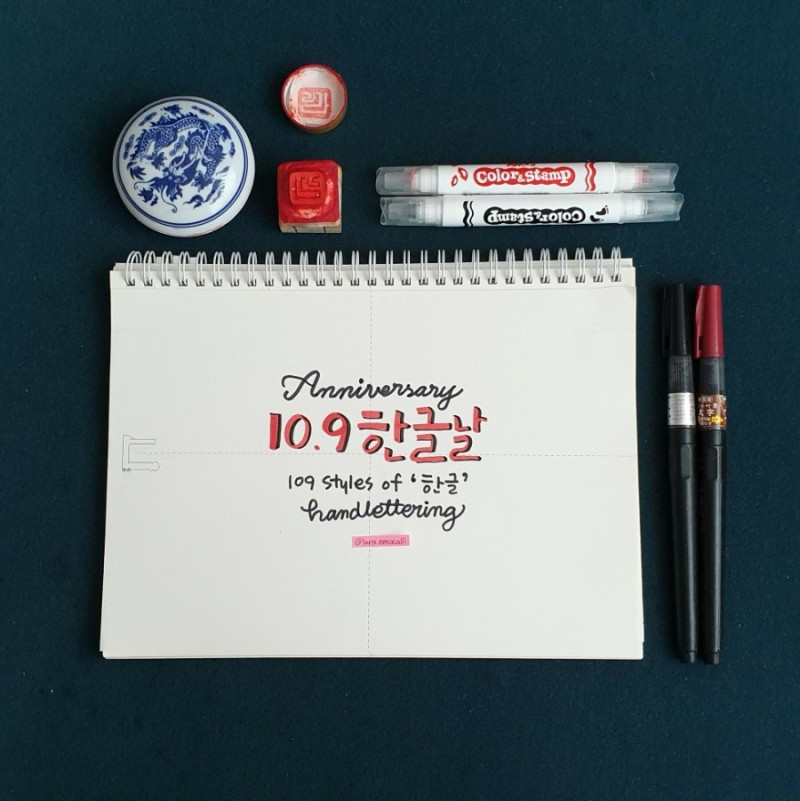 Color & Stamp
Color & Stamp
Anniversary
10.9 한글날
109 styles of '한글'
handlettering
文字